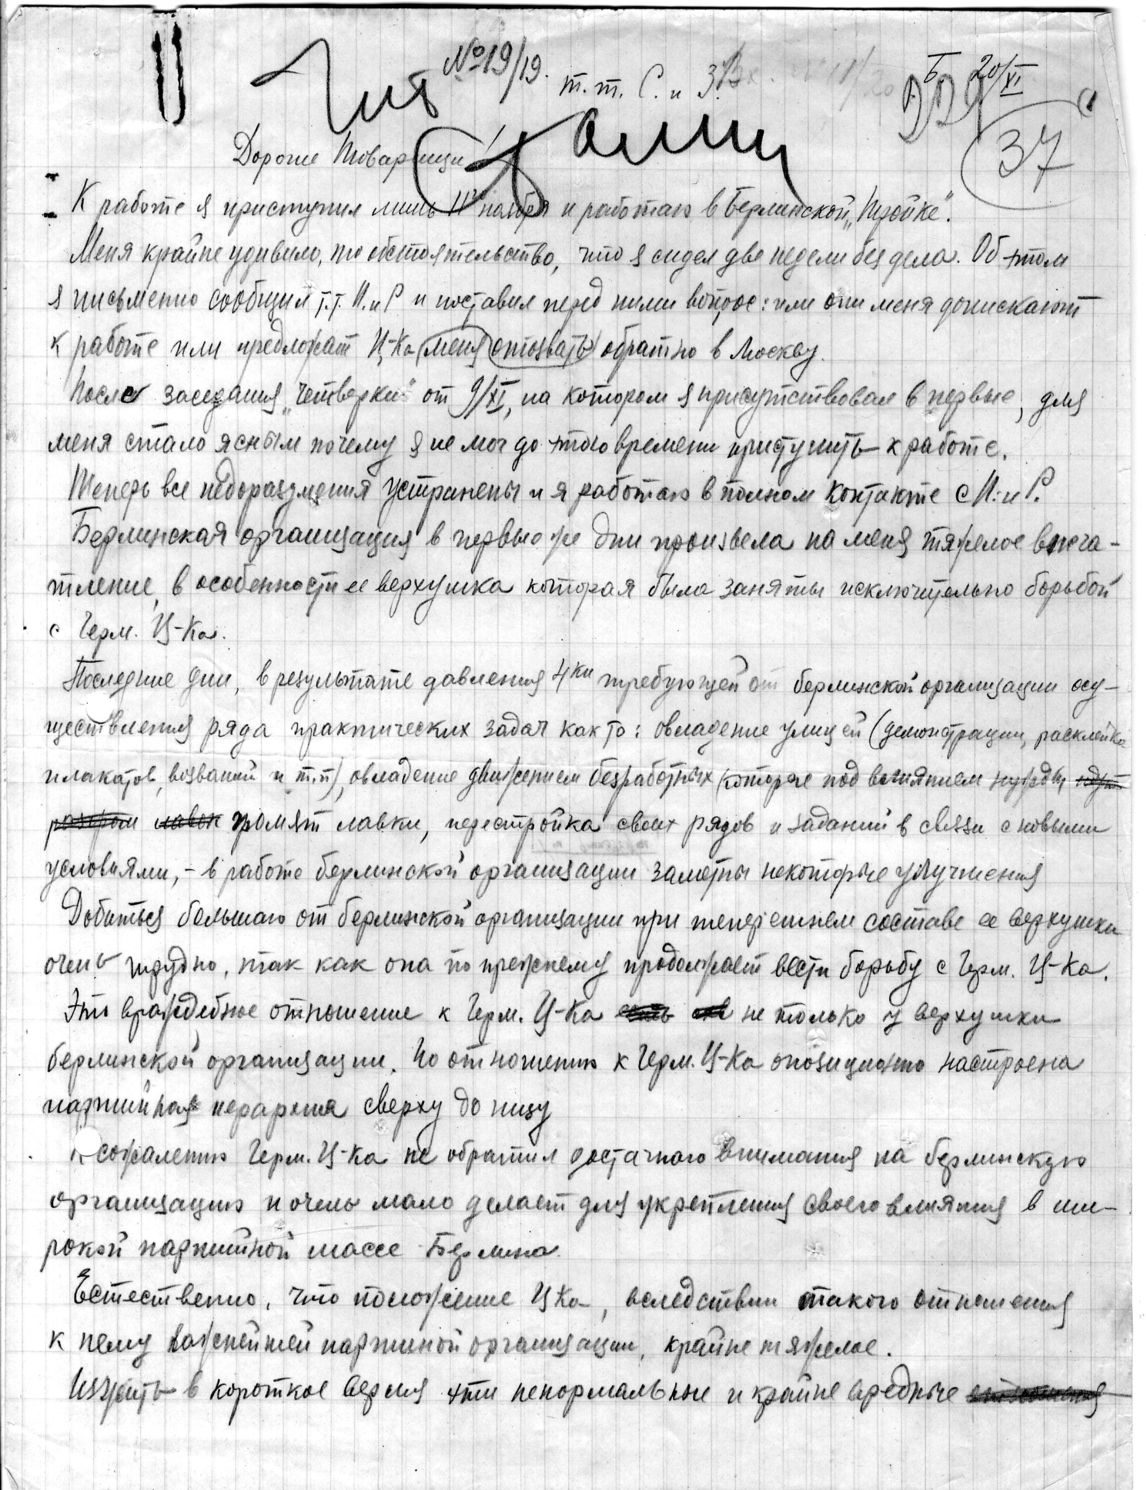 №19/19.
т.т. С. и З.
Б. 20/XI
37
Дорогие Товарищи!
К работе я приступил лишь 11го ноября и работаю в Берлинской „тройке".
Меня крайне удивило, то обстоятельство, что я сидел две недели без дела. Об этом
я письменно сообщил т.т. И. и Р и поставил перед ними вопрос: или они меня допускают
к работе или предложат Ц-Ка меня отозвать обратно в Москву.
После заседания „четверки" от 9/XI, на котором я присутствовал в первые, для
меня стало ясным почему я не мог до этого времени приступить к работе.
Теперь все недоразумения устранены и я работаю в полном контакте с И. и Р.
Берлинская организация в первые же дни произвела на меня тяжелое впеча-
тление, в особенности ее верхушка которая была занята исключительно борьбой
с Герм. Ц-Ка.
Последние дни, в результате давления 4ки требующей от берлинской организации осу-
ществления ряда практических задач как то: овладение улицей (демонстрации, расклейка
плакатов, воззваний и т.п), овладение движением безработных (которые под влиянием нужды
громят лавки, перестройка своих рядов и заданий в связи с новыми
условиями, - в работе берлинской организации заметны некоторые улучшения
Добиться большаго от берлинской организации при теперешнем составе ее верхушки
очень трудно, так как она по прежнему продолжает вести борьбу с Герм. Ц-Ка.
Это враждебное отношение к Герм. Ц-Ка не только у верхушки
берлинской организации. По отношению к Герм. Ц-Ка опозиционно настроена
партийная иерархия сверху до низу
К сожалению Герм. Ц-Ка не обратил достачного внимания на берлинскую
организацию и очень мало делает для укрепления своего влияния в ши-
рокой партийной массе Берлина.
Естественно, что положение ЦКа, вследствии такого отношения
к нему важнейшей партиной организации, крайне тяжелое.
Изжить в короткое время эти ненормальные и крайне вредные